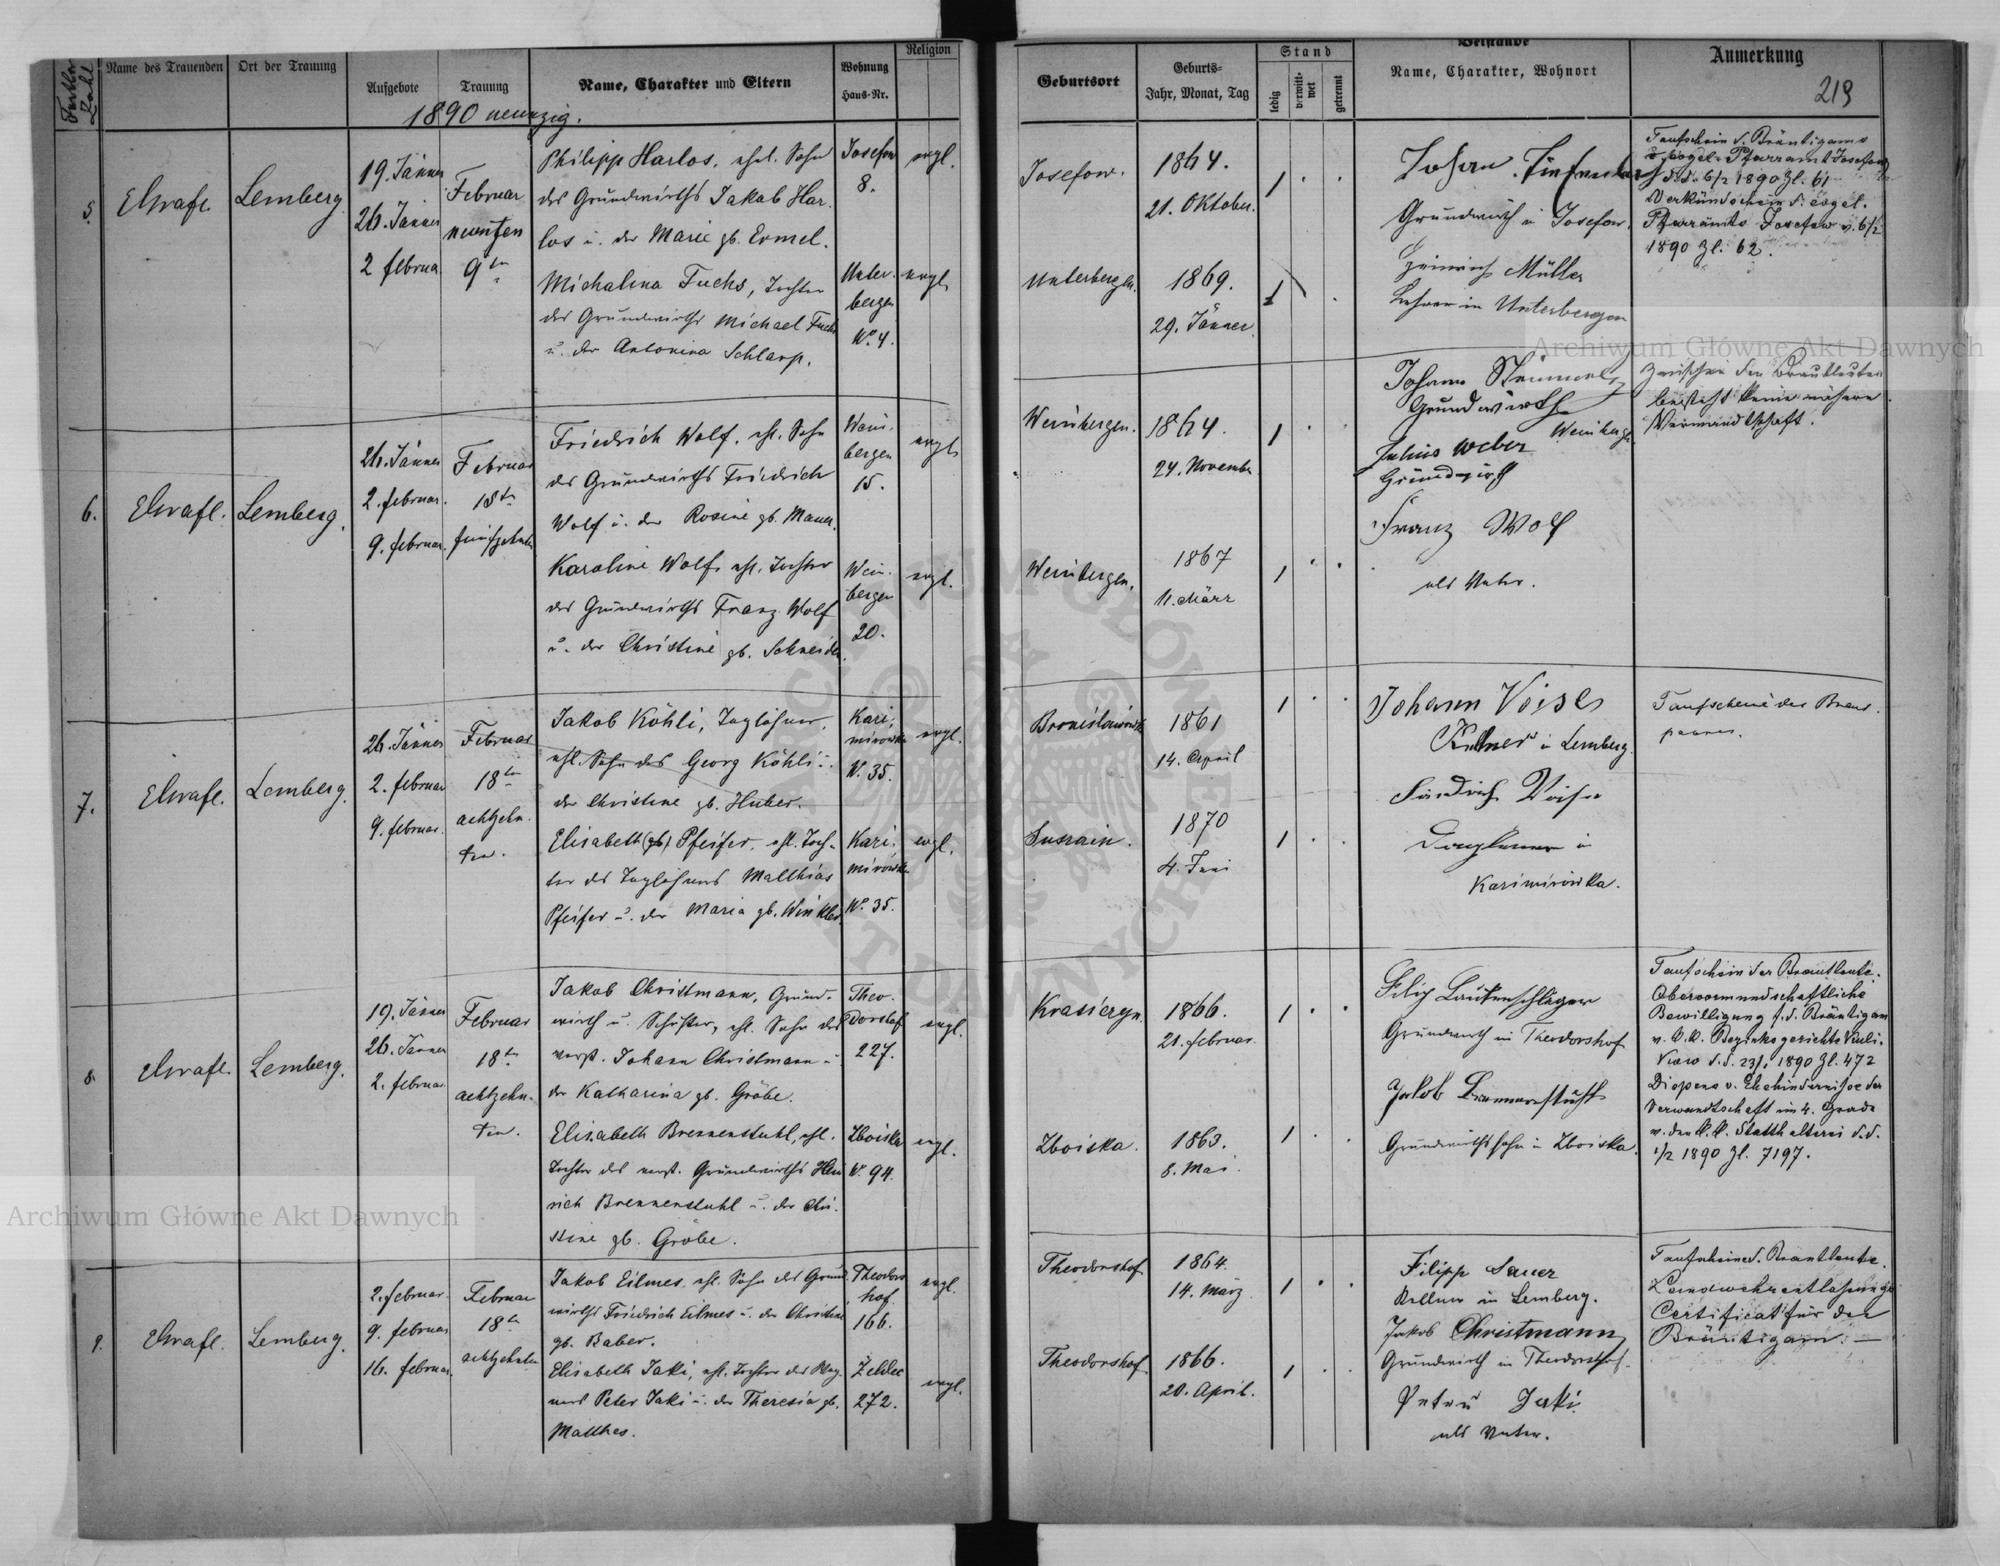 Name des Trauenden
Ort der Trauung
Aufgebote
Trauung
Name, Charakter und Eltern
Wohnung
Haus-Nr.
Religion
Geburtsort
Geburts-
Jahr, Monat, Tag
Stand
ledig
verwitt-
wet
getrennt
Beistände
Name, Charakter, Wohnort
Anmerkung
219
1890 neunzig.
5.
Lemberg.
19. Jänner
26. Jänner
2 februar
Februar
neunten
9ten
Philipp Harlos, ehel. Sohn
des Grundwirths Jakob Har-
los u. der Marie gb. Ermel.
Josefow
8.
evgl.
Michalina Fuchs, Tochter
des Grundwirths Michael Fuchs
u. der Antonina Schlarp.
Unter-
bergen
No. 4.
evgl.
Josefow.
1864.
21. Oktober.
Unterbergen.
1869.
29. Jänner.
Johan
Grundwirth in Josefow.
Heinrich Müller
Lehrer in Unterbergen
Taufschein d. Bräutigams
Pfarramt Josefow
d.d. 6/2 1890 Zl. 61
Verkündschein d. evgel.
Pfarramts Josefow v. 6/2
1890 Zl. 62.
6.
Lemberg.
26. Jänner
2. februar.
9. februar.
Februar
18ten
Friedrich Wolf, ehl. Sohn
des Grundwirths Friedrich
Wolf u. der Rosine gb. Mauer.
Wein-
bergen
15.
evgl.
Karoline Wolf, ehl. Tochter
des Grundwirths Franz Wolf
u. der Christine gb. Schneider.
Wein-
bergen
20.
evgl.
Weinbergen.
1864.
24. November
Weinbergen.
1867
11. März
Johann
Grundwirth
Julius Weber
Grundwirth
Franz Wolf
als Vater.
Zwischen den Brautleuten
besteht keine nähere
Verwandtschaft.
7.
Lemberg.
26. Jänner
2. februar
9. februar.
Februar
18ten
achtzehn-
ten.
Jakob Köhli, Taglöhner,
ehl. Sohn des Georg Köhli u.
der Christine gb. Huber.
Kasi-
mirowka
No. 35.
evgl.
Elisabeth (gb) Pfeifer, ehl. Toch-
ter des Taglöhners Matthias
Pfeifer u. der Maria gb. Winkler.
Kasi-
mirówka
No. 35.
evgl.
1861
14. April
1870
4. Juni
Johann
in Lemberg.
Friedrich
in
Kasimirówka.
Taufscheine des Braut-
paares.
8.
Lemberg.
19. Jänner
26. Jänner
2. februar
Februar
18ten
achtzehn-
ten.
Jakob Christmann, Grund-
wirth u. Schuster, ehl. Sohn des
verst. Johann Christmann u.
der Katharina gb. Gröbe.
Theo-
dorshof
227.
evgl.
Elisabeth Brennenstuhl, ehl.
Tochter des verst. Grundwirths Hein
rich Brennenstuhl u. der Chri-
stine gb. Gröbe.
Zboiska
No. 94.
evgl.
1866.
21. februar.
Zboiska.
1863.
8. Mai.
Filip Lautenschläger
Grundwirth in Theodorshof
Jakob Brennenstuhl
Grundwirthssohn in Zboiska.
Taufschein der Brautleute.
Obervormundschaftliche
Bewilligung f. d. Bräutigam
v. k.k. Bezirksgerichte Kuli-
kow d.d. 23/1 1890 Zl. 472
Dispens v. Ehehindernisse der
Verwandtschaft im 4. Grade
v. der k.k. Statthalterei d.d.
1/2 1890 Zl. 7197.
9.
Lemberg.
2. februar.
9. februar
16. februar.
Februar
18ten
achtzehnten
Jakob Eilmes, ehl. Sohn des Grund
wirths Friedrich Eilmes u. der Christine
gb. Baber.
Theodors
hof.
166.
evgl.
Elisabeth Jaki, ehl. Tochter des Wag
ners Peter Jaki u. der Theresia gb.
Matthes.
272.
evgl.
Theodorshof
1864.
14. März
Theodorshof
1866.
20. April.
Filipp Sauer
Kellner in Lemberg.
Jakob Christmann
Grundwirth in Theodorshof.
Peter Jaki
als Vater.
Taufscheine d. Brautleute.
Landwehrentlassungs
Certificat für den
Bräutigam. —
Archiwum Główne Akt Dawnych
Archiwum Główne Akt Dawnych